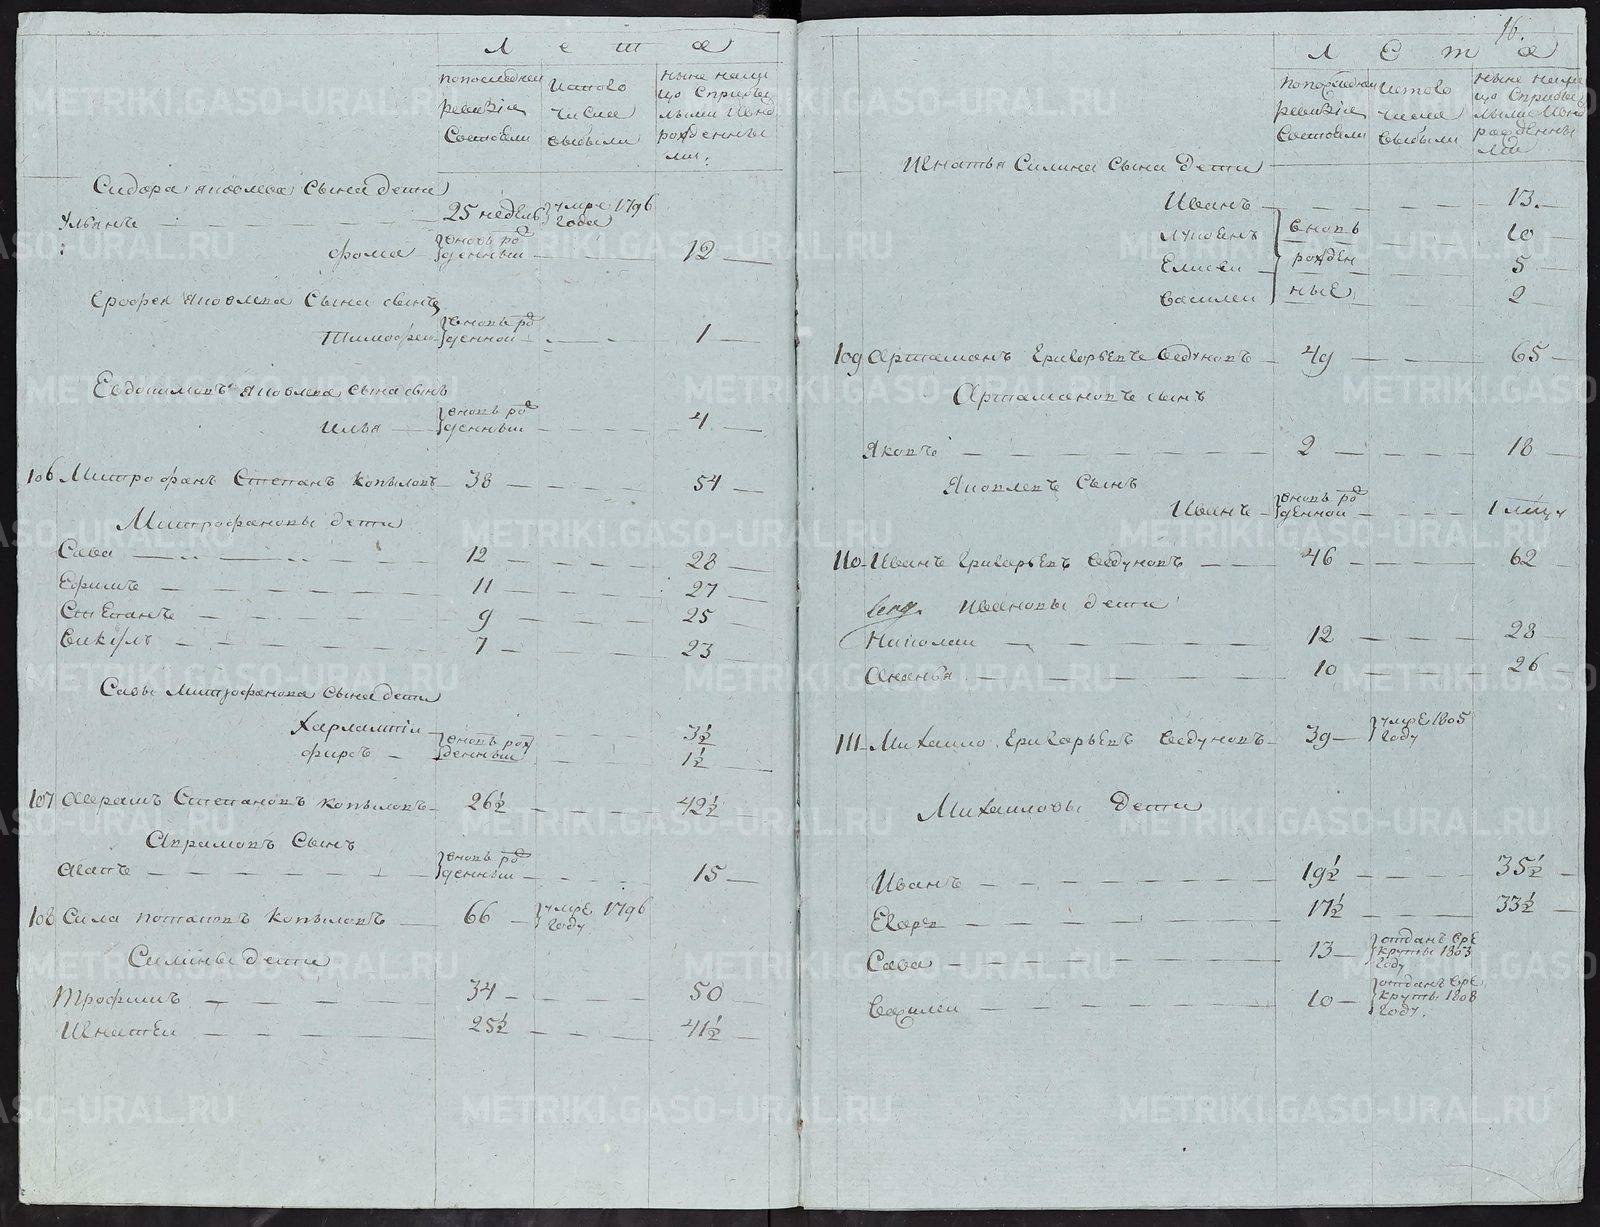 Лета
попоследней ревизiи состояли
изтого числа выбыли
ныне налицо
Сидора яковлева сына дети
Ульянъ 25 недель умре 1796 года
фома вновь рожденныи 12
Ерофея яковлева сына сынъ
Тимофеи вновь рожденной 1
Евдокимовъ яковлева сына сынъ
илья вновь рожденныи 4
106 Митрофанъ Степанъ Копыловъ 38 54
Митрофановы дети
Сава 12 28
Ефимъ 11 27
Степанъ 9 25
Викулъ 7 23
Савы Митрофанова сына дети
Харлампiи 3½
фирсъ вновь рожденныи 1½
107 Аврамъ Степановъ Копыловъ 26½ 42½
Аврамовъ Сынъ
Агапъ вновь рожденныи 15
108 Сила потаповъ Копыловъ 66 умре 1796 году
Силины дети
Трофимъ 34 50
Игнатеи 25½ 41½
16.
Лета
попоследней ревизiи состояли
изтого числа выбыли
ныне налицо
Игнатья Силина сына дети
Иванъ 13
Лупенъ вновь 10
Елисеи рожден 5
Василеи ные 2
109 Артамонъ Григорьевъ Ведуновъ 49 65
Артамоновъ сынъ
Яковъ 2 18
Яковлевъ Сынъ
Иванъ вновь рожденной 1
110 Иванъ Григорьевъ Ведуновъ 46 62
Ивановы дети
Николаи 12 28
Ананья 10 26
111 Михаило Григорьевъ Ведуновъ 39 умре 1805 году
Михаиловы дети
Иванъ 19½ 35½
Егоръ 17½ 33½
Сава 13 отданъ в рекруты 1803 году
Василеи 10 отданъ в рекруты 1808 году.
METRIKI.GASO-URAL.RU